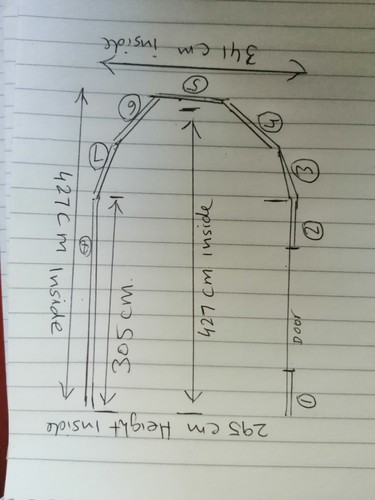 341 cm inside
5
6
4
7
3
427 cm Inside
8
305 cm.
427 cm inside
2
DOOR
1
295 cm Height Inside